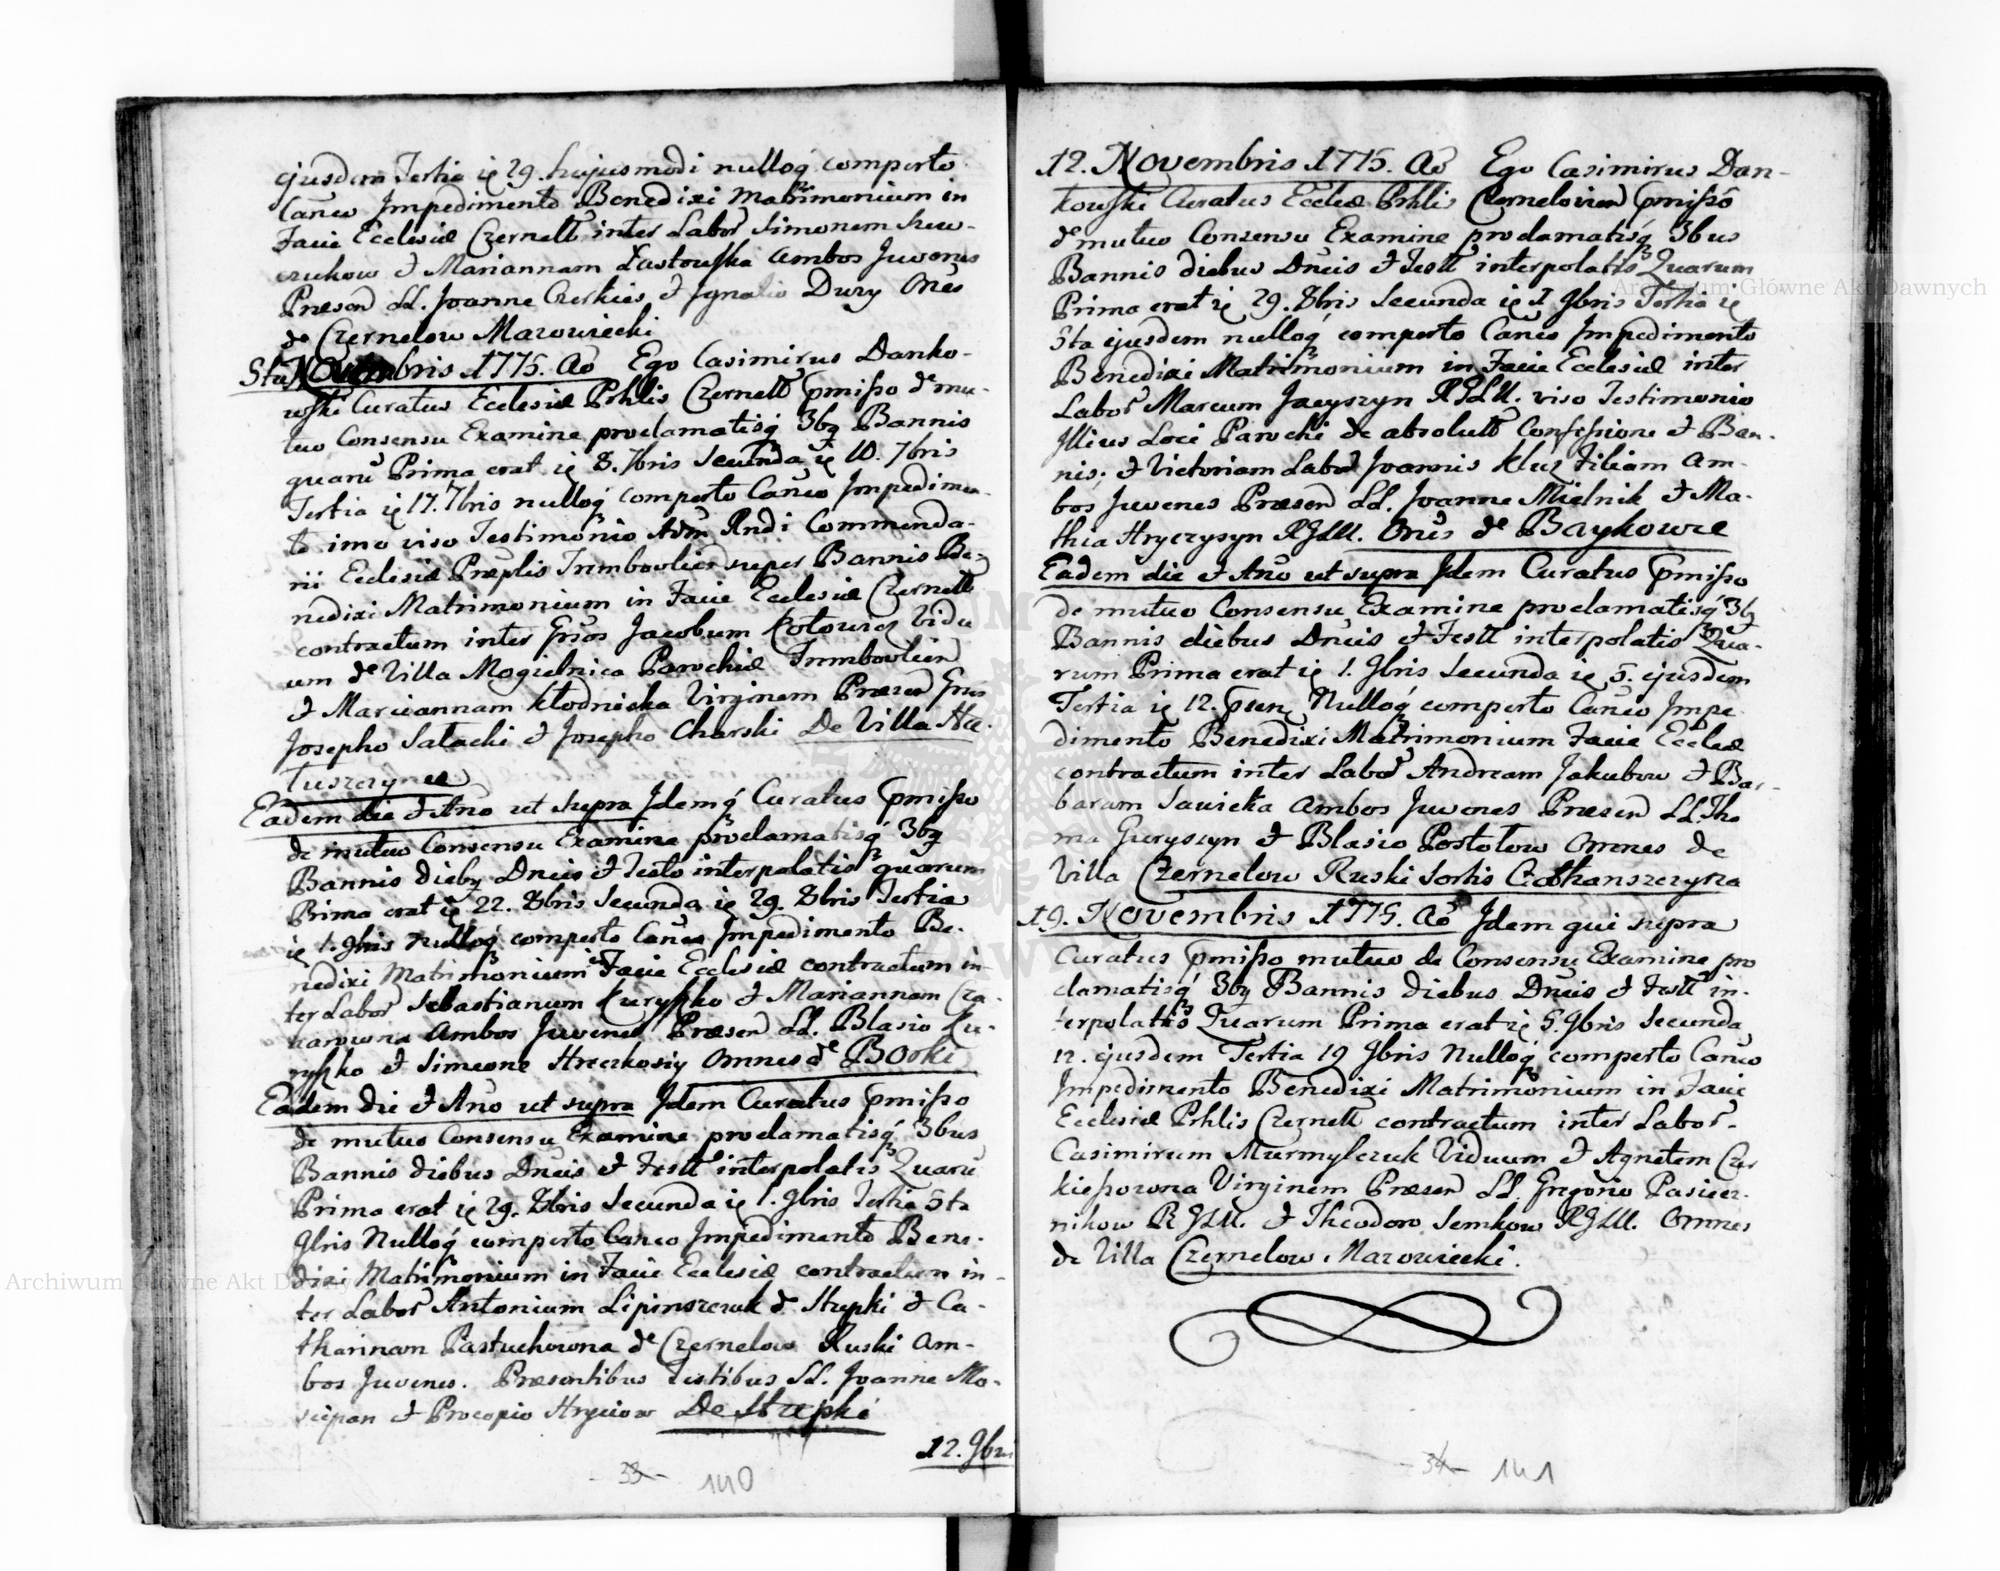 ejusdem Tertia ię 29. hujusmodi nulloq́ comperto
Canco Impedimento Benedixi Matrimonium in
Facie Ecclesiæ Czernell inter Labor Simonem
& Mariannam ambos Juvenes
Præsen LL. Joanne & Ignatio Dury Ones
de Czernelow Mazowiecki
5ta Novembris 1775. Ao Ego Casimirus Danko-
wski Curatus Ecclesiæ Prhlis Czernell Pmisso de mu-
tuo Consensu Examine proclamatisq́ 3bq Bannis
quaru Prima erat ię 8. 7bris Secunda ię 10. 7bris
Tertia ię 17. 7bris nulloq́ comperto Canco Impedimen-
to imo viso Testimonio Adm Rndi Commenda-
rii Ecclesiæ Præplis Trembowlien super Bannis Be-
nedixi Matrimonium in Facie Ecclesiæ Czernell
contractum inter Gnsos Jacobum Kotowicz Vidu
um de Villa Mogielnica Parochiæ Trembowlien
& Mariannam Kłodnicka Virginem Præsen Gnis
Josepho Sałacki & Josepho Charski De Villa Ha-
łuszczynce
Eadem die & Ano ut supra Idemq́ Curatus Pmisso
de mutuo Consensu Examine proclamatisq́ 3bq
Bannis diebq Dncis & Festo interpolatis quorum
Prima erat ię 22. 8bris Secunda ię 29. 8bris Tertia
ię 1. 9bris nulloq́ comperto Canco Impedimento Be-
nedixi Matrimonium Facie Ecclesiæ contractum in-
ter Labor Sebastianum Kuryszko & Mariannam
ambos Juvenes Præsen LL. Blasio Ku-
ryszko & Simeone Hreczkosiy Omnes de Borki
Eadem die & Ano ut supra Idem Curatus Pmisso
de mutuo Consensu Examine proclamatisq́ 3bus
Bannis diebus Dncis & Festt interpolatis Quaru
Prima erat ię 29. 8bris Secunda ię 1. 9bris Tertia 5ta
9bris Nulloq́ comperto Canco Impedimento Bene-
dixi Matrimonium in Facie Ecclesiæ contractum in-
ter Labor Antonium Lipinszczuk de Stupki & Ca-
tharinam Pastuchowna de Czernelow Ruski am-
bos Juvenes. Præsentibus Testibus LL. Joanne Mo-
scipan & Procopio Hryciow De Stupki
12. 9bris
33 140
12. Novembris 1775. Ao Ego Casimirus Dan-
kowski Curatus Eccleæ Prhlis Czernelovien Pmisso
de mutuo Consensu Examine proclamatisq́ 3bus
Bannis diebus Dncis & Festt interpolatis Quarum
Prima erat ię 29. 8bris Secunda ię 1 9bris Tertia ię
5ta ejusdem nulloq́ comperto Canco Impedimento
Benedixi Matrimonium in Facie Ecclesiæ inter
Labor Marcum Jacyszyn RGLU. viso Testimonio
Illius Loci Parochi de absoluto Confessione & Ban-
nis; & Victoriam Labor Joannis Kluz Filiam am-
bos Juvenes Præsen LL. Joanne Mielnik & Ma-
thia Hryczysyn RGLU. Ones de Baykowce
Eadem die & Ano ut supra Idem Curatus Pmisso
de mutuo Consensu Examine proclamatisq́ 3bq
Bannis diebus Dncis & Festt interpolatis Qua-
rum Prima erat ię 1. 9bris Secunda ię 5. ejusdem
Tertia ię 12. Nulloq́ comperto Canco Impe
dimento Benedixi Matrimonium Facie Eccleæ
contractum inter Labor Andream Jakubow & Bar-
baram Sawicka ambos Juvenes Præsen LL Tho
ma Guryszyn & Blasio Postołow Omnes de
Villa Czernelow Ruski Sortis
19. Novembris 1775. Ao Idem qui supra
Curatus Pmisso mutuo de Consensu Examine pro
clamatisq́ 3bq Bannis diebus Dncis & Festt in-
terpolatis Quarum Prima erat ię 5. 9bris Secunda
12. ejusdem Tertia 19 9bris Nulloq́ comperto Canco
Impedimento Benedixi Matrimonium in Facie
Ecclesiæ Prhlis Czernell contractum inter Labor.
Casimirum Murmylczuk Viduum & Agnetem Czer
kiessowna Virginem Præsen LL. Gregorio Pasiecz-
nikow RGLU. & Theodoro Semkow RGLU. Omnes
de Villa Czernelow Mazowiecki.
34 141
Archiwum Główne Akt Dawnych
Archiwum Główne Akt Dawnych